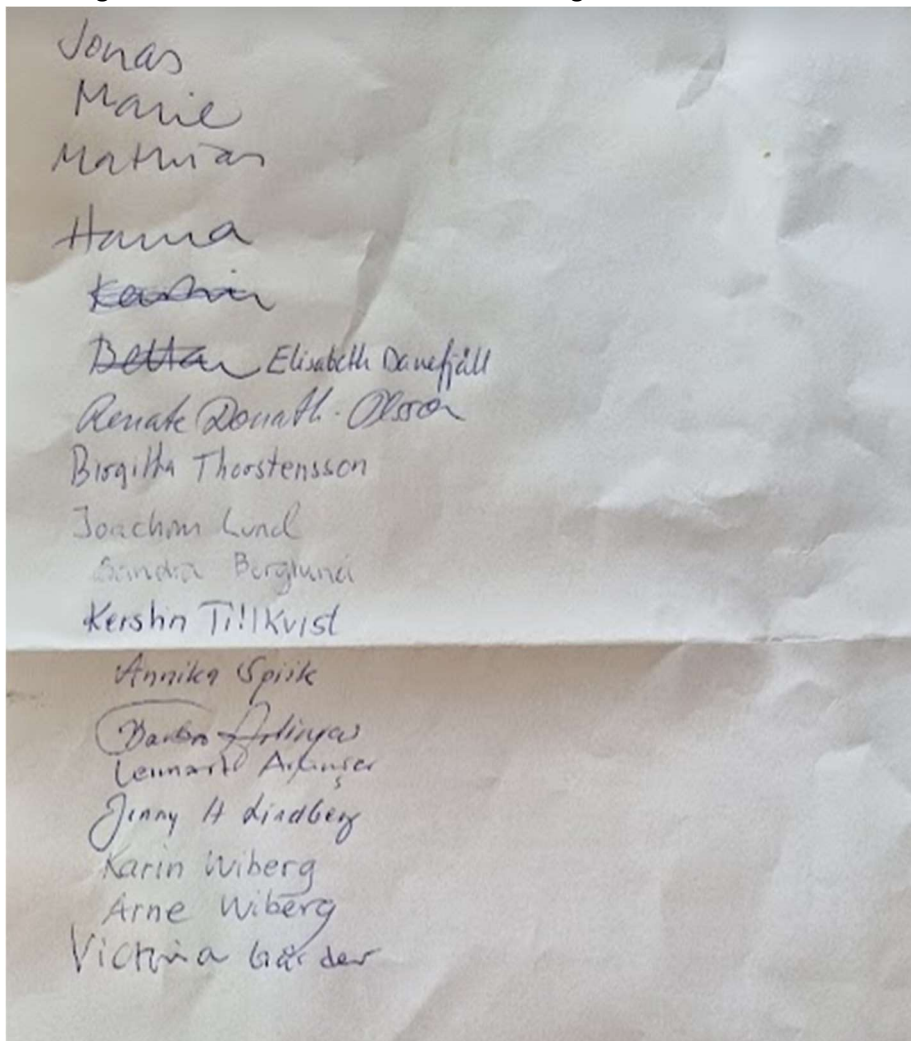 Jonas
Marie
Mathias
Hanna
Kerstin
Bettan Elisabeth Danefjäll
Renate Donath-Olsson
Birgitta Thorstensson
Joachim Lund
Sandra Berglund
Kerstin Tillkvist
Annika Spirk
Barbro
Lennart
Jenny H Lindberg
Karin Wiberg
Arne Wiberg
Victoria Gärder